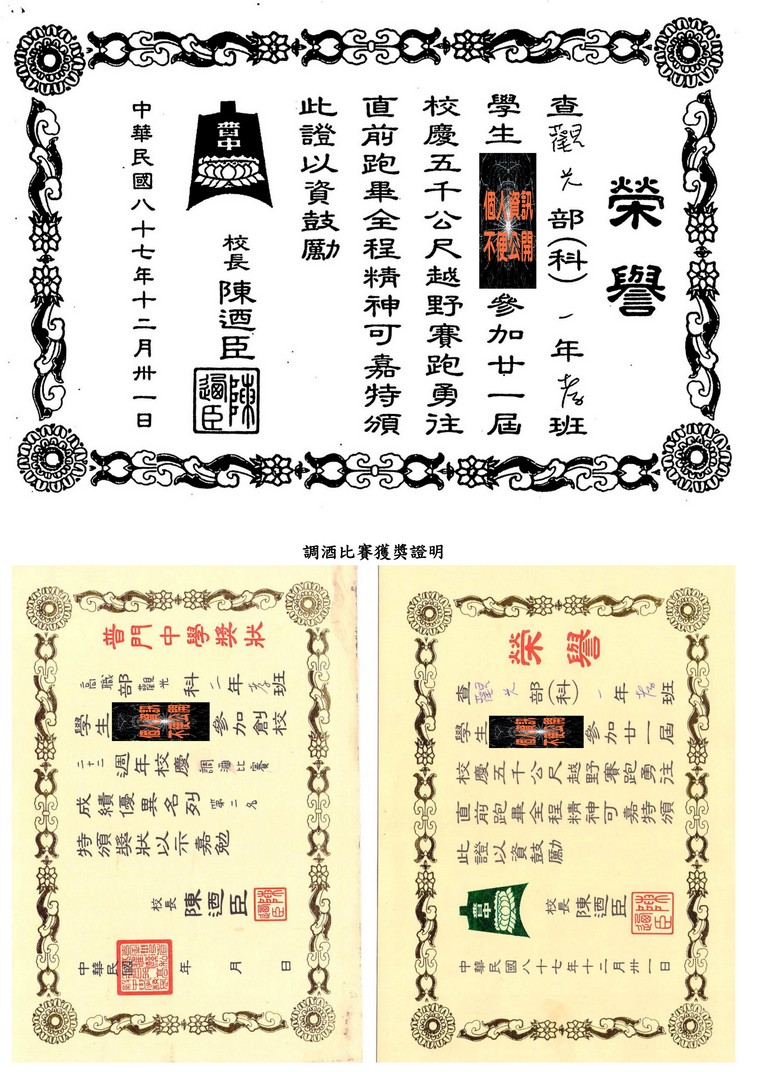 榮譽
查觀光部(科)一年孝班
學生 個人資訊 不便公開 參加廿一屆
校慶五千公尺越野賽跑勇往
直前跑畢全程精神可嘉特頒
此證以資鼓勵
普中
校長 陳迺臣
陳迺臣
中華民國八十七年十二月卅一日
調酒比賽獲獎證明
普門中學獎狀
高職部觀光科二年孝班
學生 個人資訊 不便公開 參加創校
二十二週年校慶調酒比賽
成績優異名列第二名
特頒獎狀以示嘉勉
校長 陳迺臣
陳迺臣
中華民國 年 月 日
榮譽
查觀光部(科)一年孝班
學生 個人資訊 不便公開 參加廿一屆
校慶五千公尺越野賽跑勇往
直前跑畢全程精神可嘉特頒
此證以資鼓勵
普中
校長 陳迺臣
陳迺臣
中華民國八十七年十二月卅一日